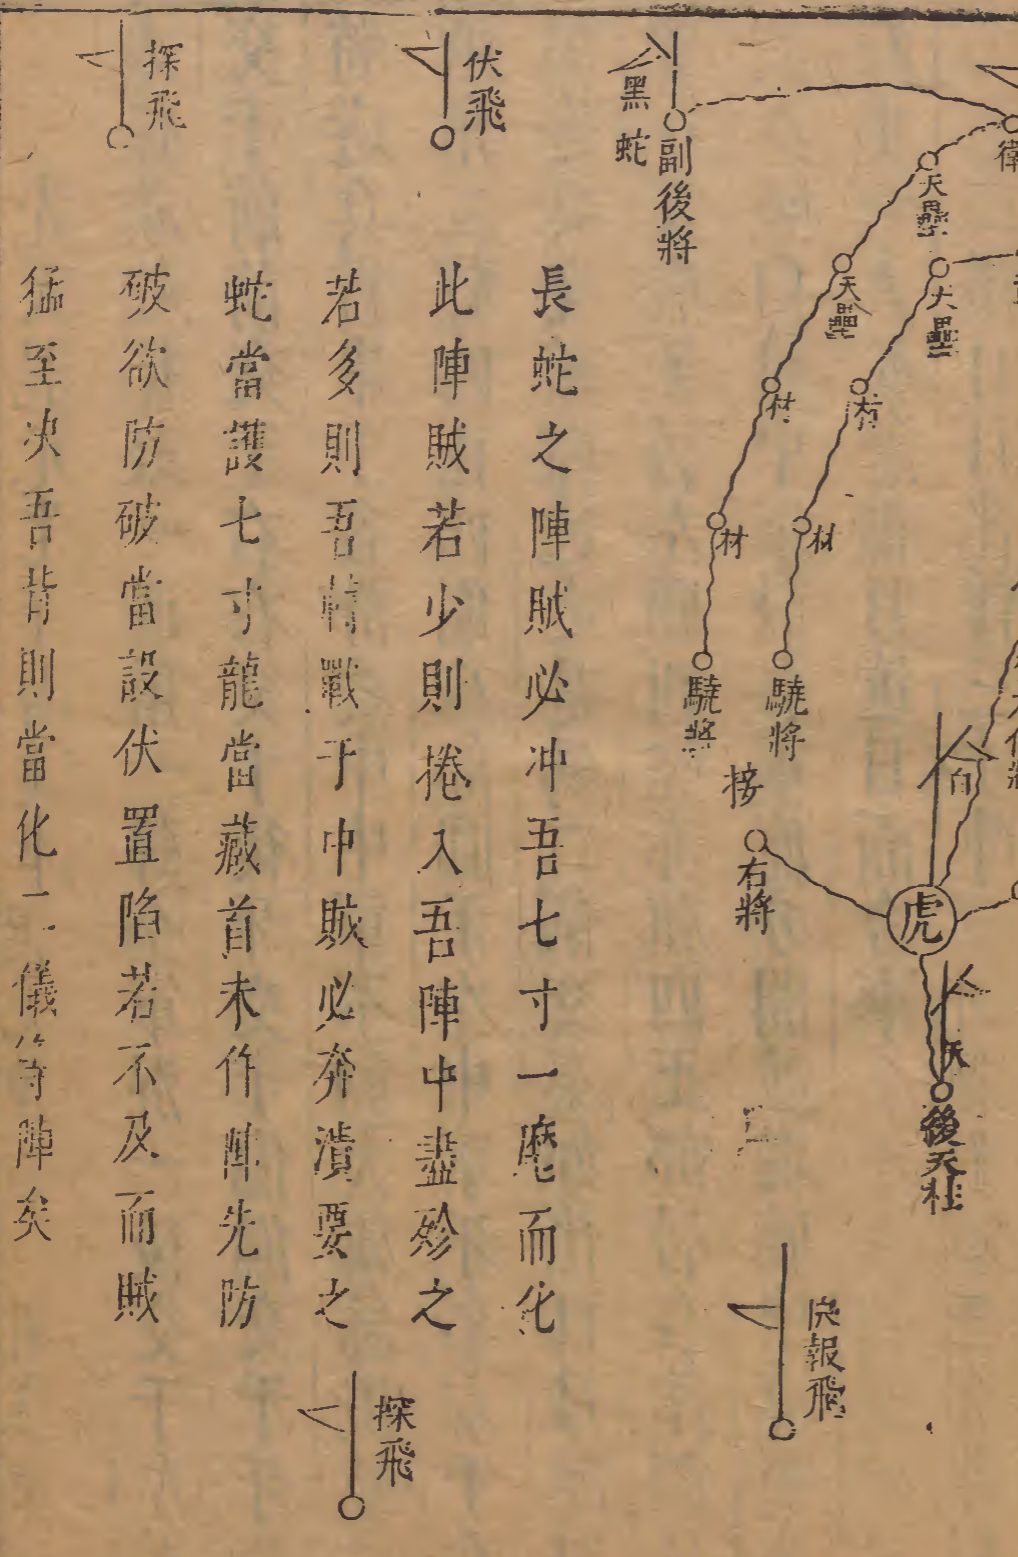 衛
天壘
天壘
大壘
材
材
材
材
驍將
驍將
白
接
右將
虎
天
後天柱
快報飛
黑蛇
副後將
伏飛
探飛
長蛇之陣賊必冲吾七寸一麾而化
此陣賊若少則捲入吾陣中盡殄之
若多則吾特戰于中賊必奔潰要之
蛇當護七寸龍當藏首未作陣先防
破欲防破當設伏置陷若不及而賊
猛至决吾背則當化二儀等陣矣
探飛